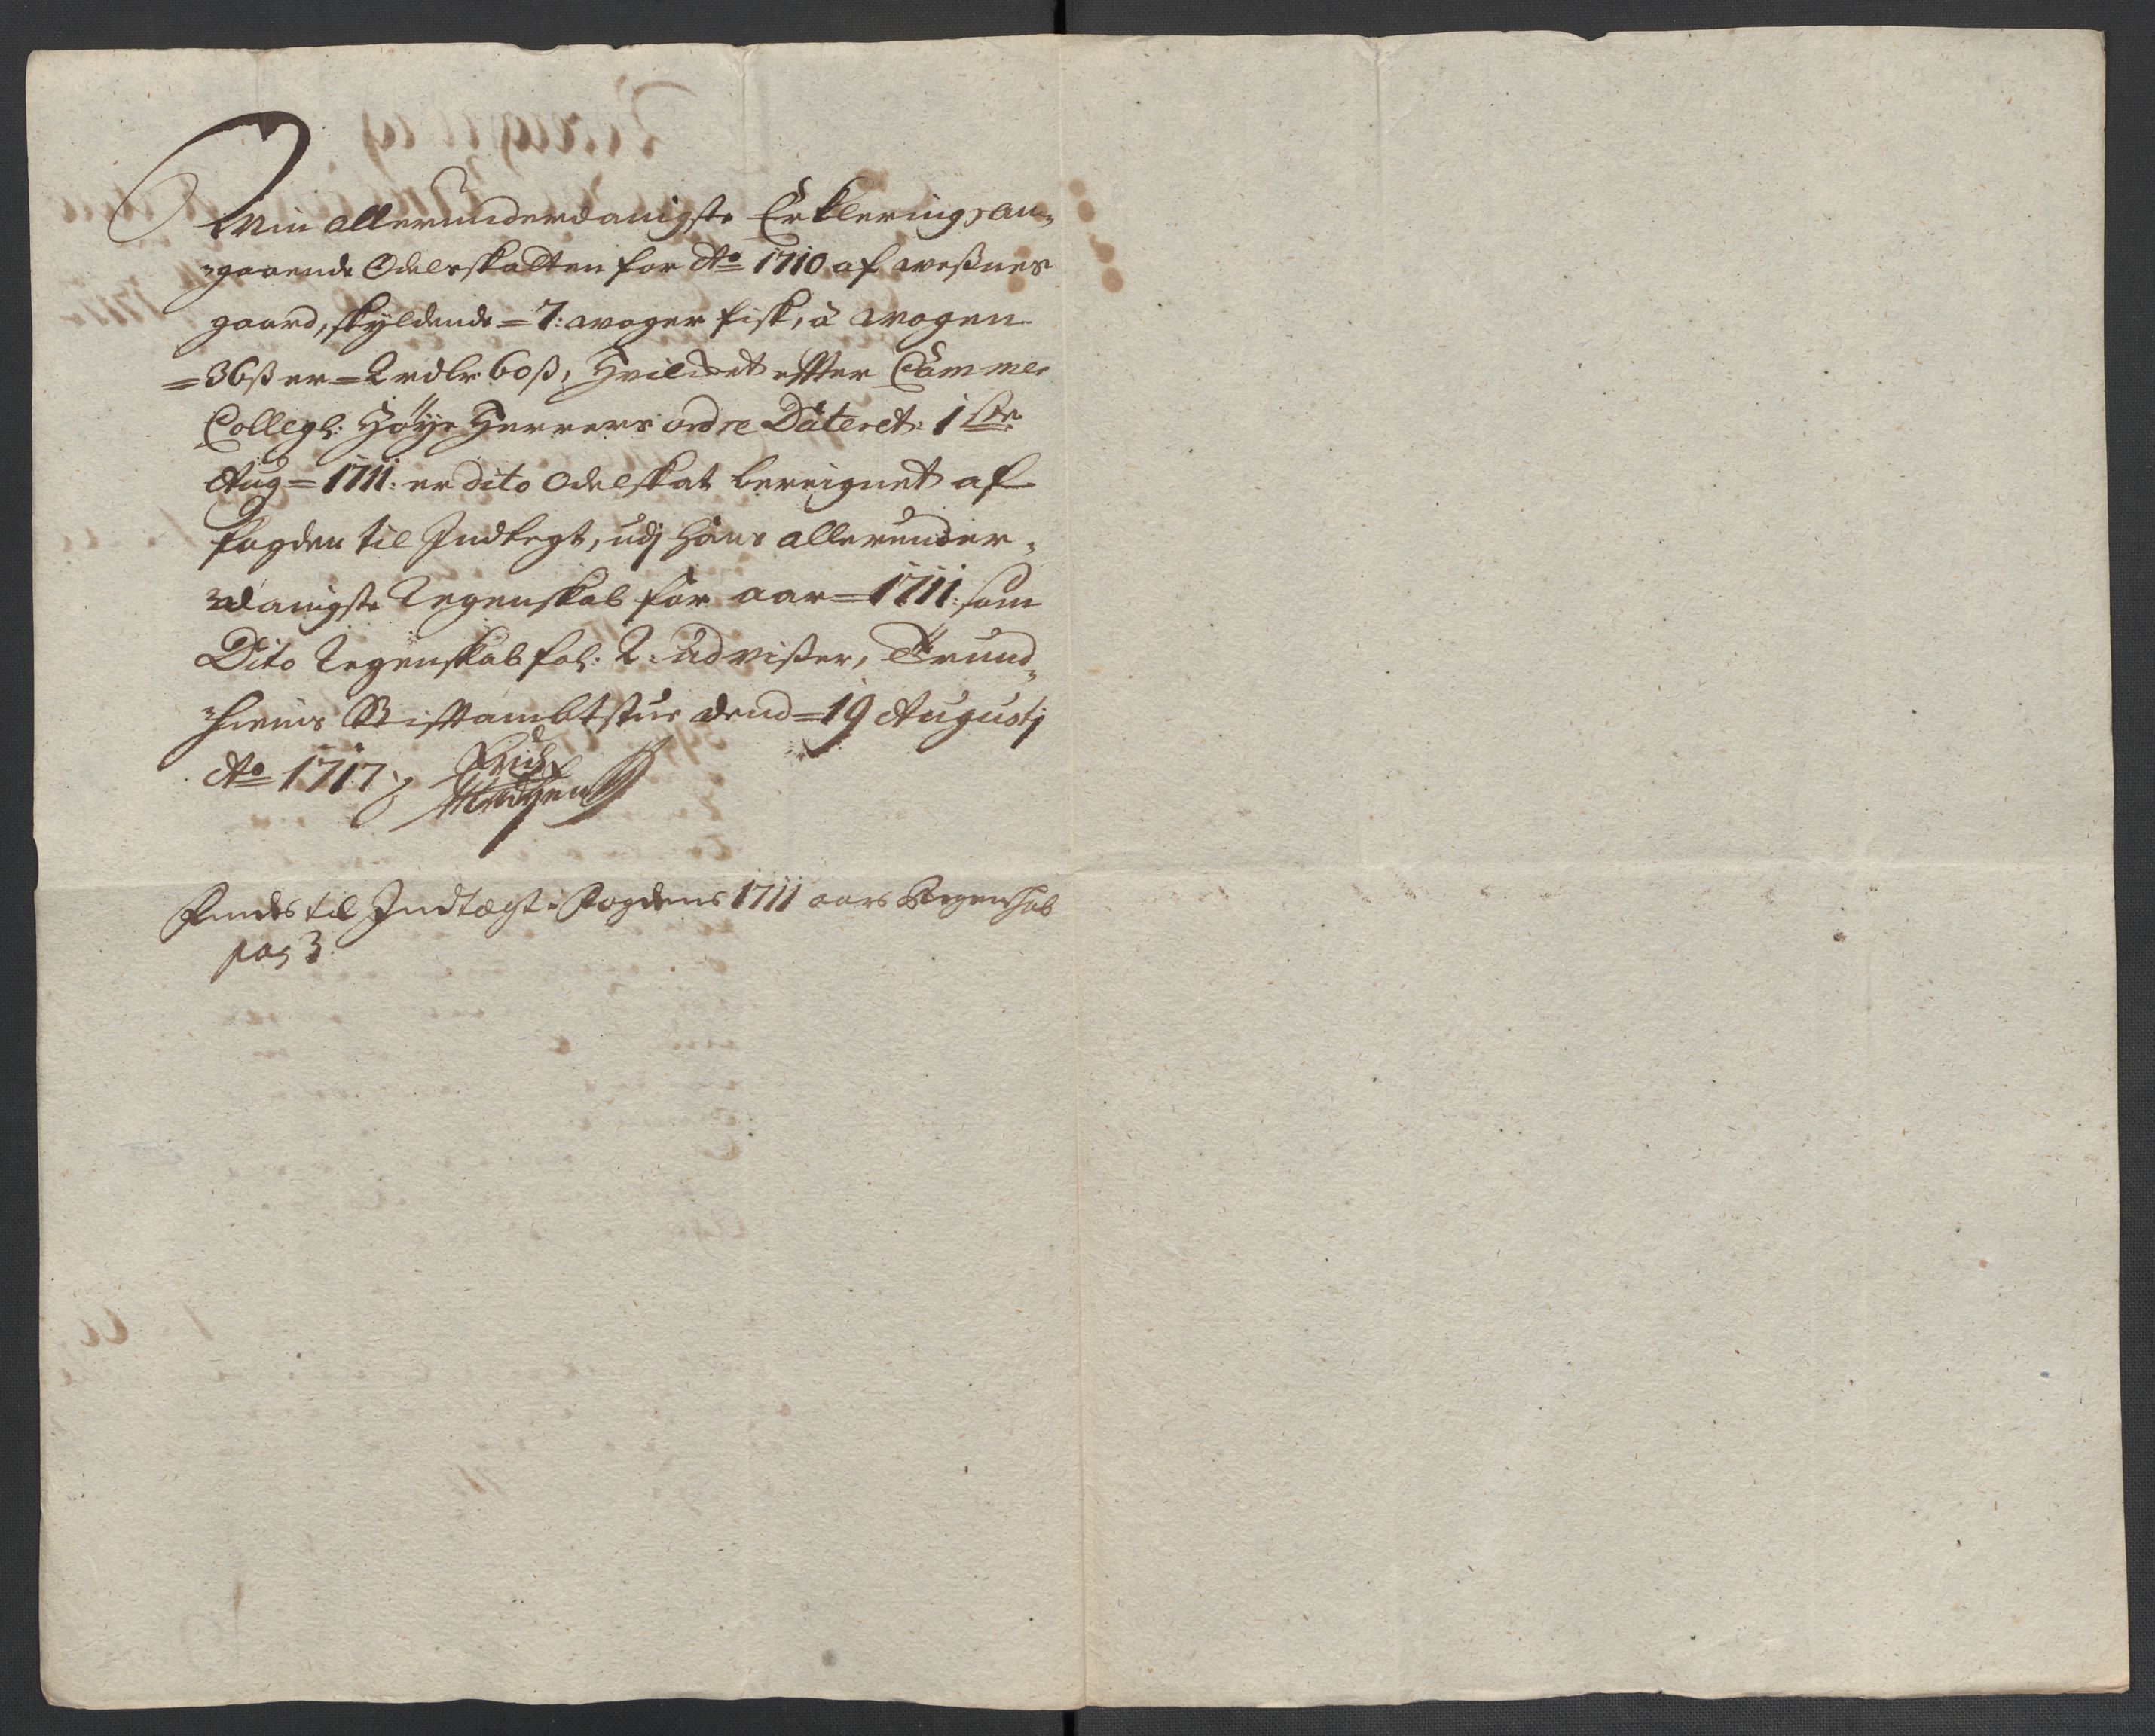 Min allerunderdanigste Erklering, an-
gaaende Odelsskatten for Ao 1710 af Weßnes
gaard, skyldende = 7: woger fisk, á wogen
= 36 ß er = 2 rdlr 60 ß, Hvilcket effter Cammer
Collegl: Høye Herrers ordre Dateret: 1ste
Aug = 1711: er dito Odelskat bereignet af
fogden til Indtegt, udj hans allerunder-
danigste Regenskab for aar = 1711: som
Dito Regenskab fol: 2: udvißer, Trund-
hiems Stiftambtstue dend = 19 Augustj
Ao 1717
Findes til Indtægt i Fogdens 1711 aars Regenskab
pag 3